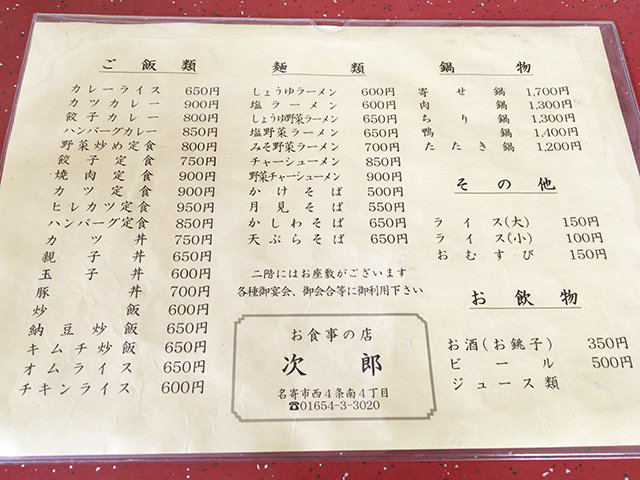 ご飯類
カレーライス 650円
カツカレー 900円
餃子カレー 800円
ハンバーグカレー 850円
野菜炒め定食 800円
餃子定食 750円
焼肉定食 900円
カツ定食 900円
ヒレカツ定食 950円
ハンバーグ定食 850円
カツ丼 750円
親子丼 650円
玉子丼 600円
豚丼 700円
炒飯 600円
納豆炒飯 650円
キムチ炒飯 650円
オムライス 650円
チキンライス 600円
麺類
しょうゆラーメン 600円
塩ラーメン 600円
しょうゆ野菜ラーメン 650円
塩野菜ラーメン 650円
みそ野菜ラーメン 700円
チャーシューメン 850円
野菜チャーシューメン 900円
かけそば 500円
月見そば 550円
かしわそば 650円
天ぷらそば 650円
二階にはお座敷がございます
各種御宴会、御会合等に御利用下さい
お食事の店
次郎
名寄市西4条南4丁目
☎01654-3-3020
鍋物
寄せ鍋 1,700円
肉鍋 1,300円
ちり鍋 1,300円
鴨鍋 1,400円
たたき鍋 1,200円
その他
ライス(大) 150円
ライス(小) 100円
おむすび 150円
お飲物
お酒(お銚子) 350円
ビール 500円
ジュース類